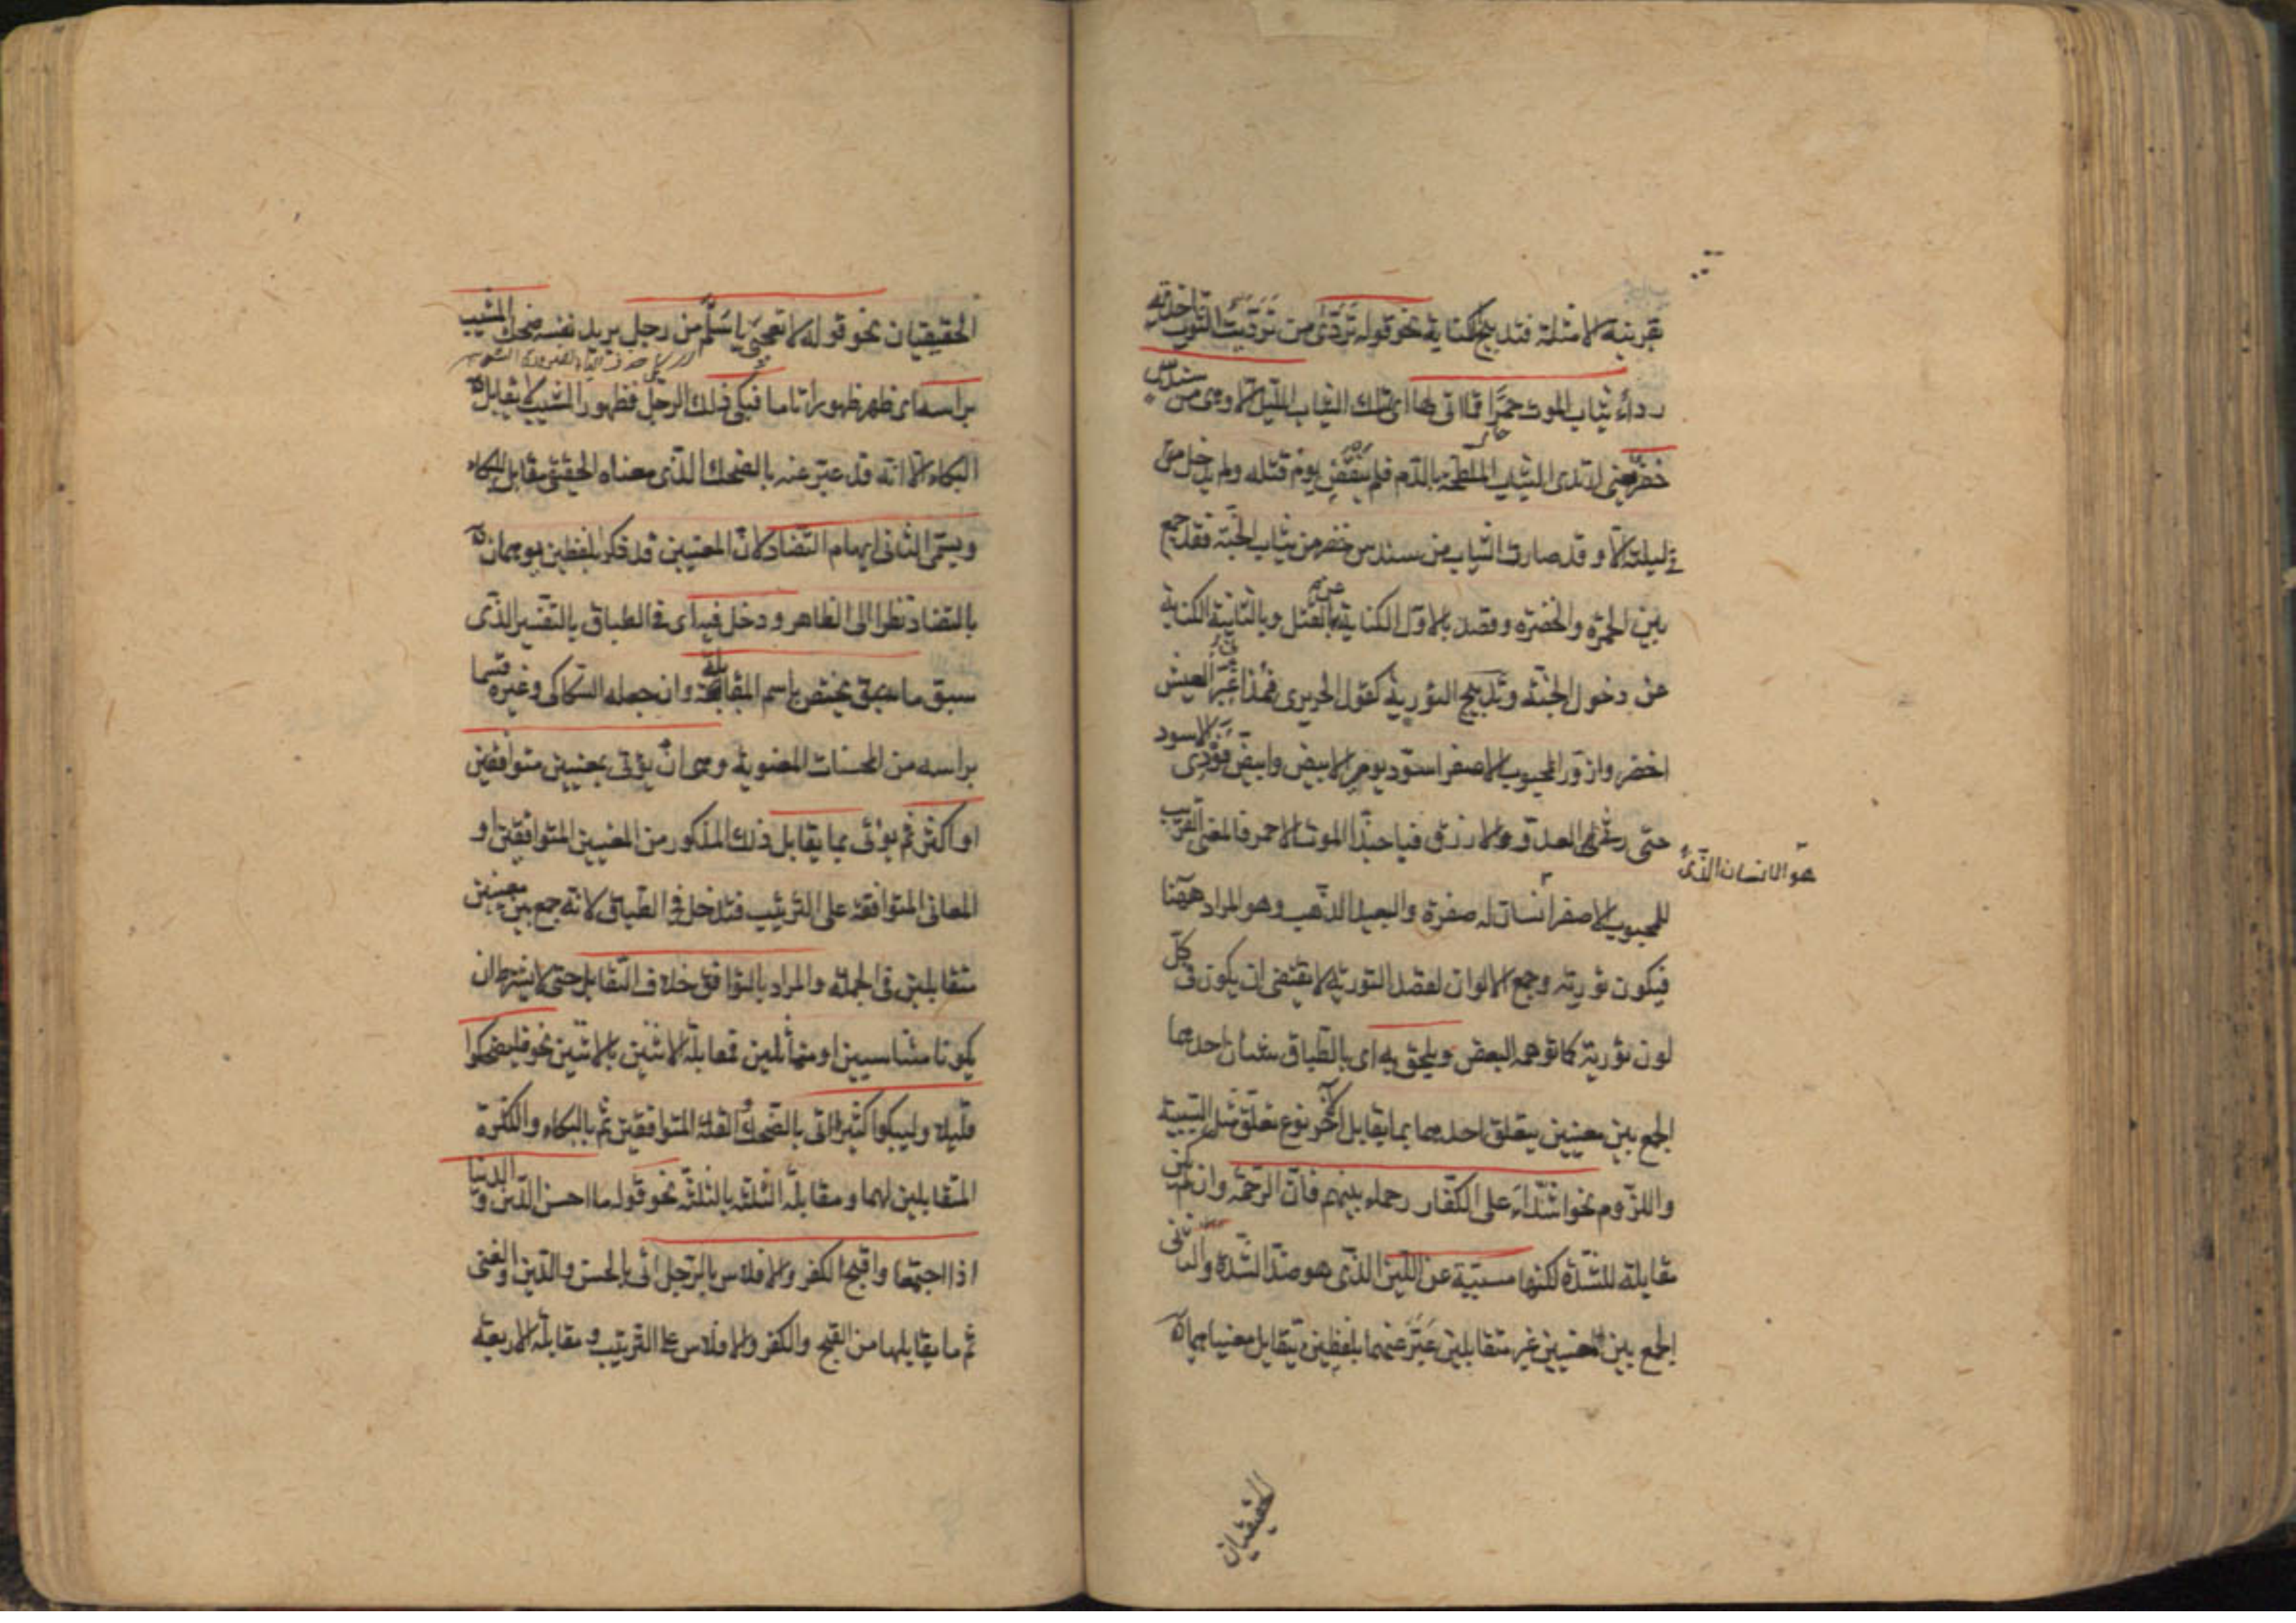 بقرينة الامثلة فتدبيج الكناية نحو قوله تَرَدّى من تَرَدَّيتُ الثوب اخذته
رداءً ثياب الموت حمرًا فما اتى لها اى لتلك الثياب الليل الا وهى من سندس
خضر يعنى ارتدى الثياب الملطخة بالدم فلم ينقض يوم قتله ولم يدخل من
ليلته الا و قد صارت الثياب من سندس خضر من ثياب الجنة فقد جمع
بين الحمرة والخضرة وقصد بالاول الكناية عن القتل وبالثانية الكناية
عن دخول الجنة وتدبيج التورية كقول الحريرى فمذ اغبر العيش
اخضر وازور المحبوب الاصفر اسود يومى الابيض وابيض فودى الاسود
حتى رثى لى العدو الازرق فيا حبذا الموت الاحمر فالمعنى القريب
هو الانسان الذى
للمحبوب الاصفر انسان له صفرة والبعيد الذهب وهو المراد ههنا
فيكون تورية وجمع الالوان لقصد التورية لا يقتضى ان يكون فى كل
لون تورية كما توهمه البعض ويلحق به اى بالطباق شيئان احدهما
الجمع بين معنيين يتعلق احدهما بما يقابل الآخر نوع تعلق مثل السببية
واللزوم نحو اشداء على الكفار رحماء بينهم فان الرحمة وان لم تكن
مقابلة للشدة لكنها مسببة عن اللين الذى هو ضد الشدة والثانى
الجمع بين المعنيين غير متقابلين عُبّر عنهما بلفظين يتقابل معنياهما
الحقيقيان
الحقيقيان نحو قوله لا تعجبى يا سَلْمُ من رجل يريد نفسه ضحك المشيب
براسه اى ظهر ظهورا تاما فبكى ذلك الرجل فظهور المشيب لا يقابل
البكاء الا انه قد عبر عنه بالضحك الذى معناه الحقيقى مقابل للبكاء
ويسمى الثانى ايهام التضاد لان المعنيين قد ذكرا بلفظين يوهمان
بالتضاد نظرا الى الظاهر و دخل فيه اى فى الطباق بالتفسير الذى
سبق ما يختص باسم المقابلة وان جعله السكاكى وغيره قسما
براسه من المحسنات المعنوية وهى ان يؤتى بمعنيين متوافقين
او اكثر ثم يؤتى بما يقابل ذلك المذكور من المعنيين المتوافقين او
المعانى المتوافقة على الترتيب فتدخل فى الطباق لانه جمع بين معنيين
متقابلين فى الجملة والمراد بالتوافق خلاف التقابل حتى لا يشترط ان
يكونا متناسبين او متماثلين فمقابلة الاثنين بالاثنين نحو فليضحكوا
قليلا وليبكوا كثيرا اتى بالضحك والقلة المتوافقين ثم بالبكاء والكثرة
المتقابلين لهما ومقابلة الثلثة بالثلثة نحو قوله ما احسن الدين و الدنيا
اذا اجتمعا واقبح الكفر والافلاس بالرجل اتى بالحسن والدين والغنى
ثم ما يقابلها من القبح والكفر والافلاس على الترتيب و مقابلة الاربعة